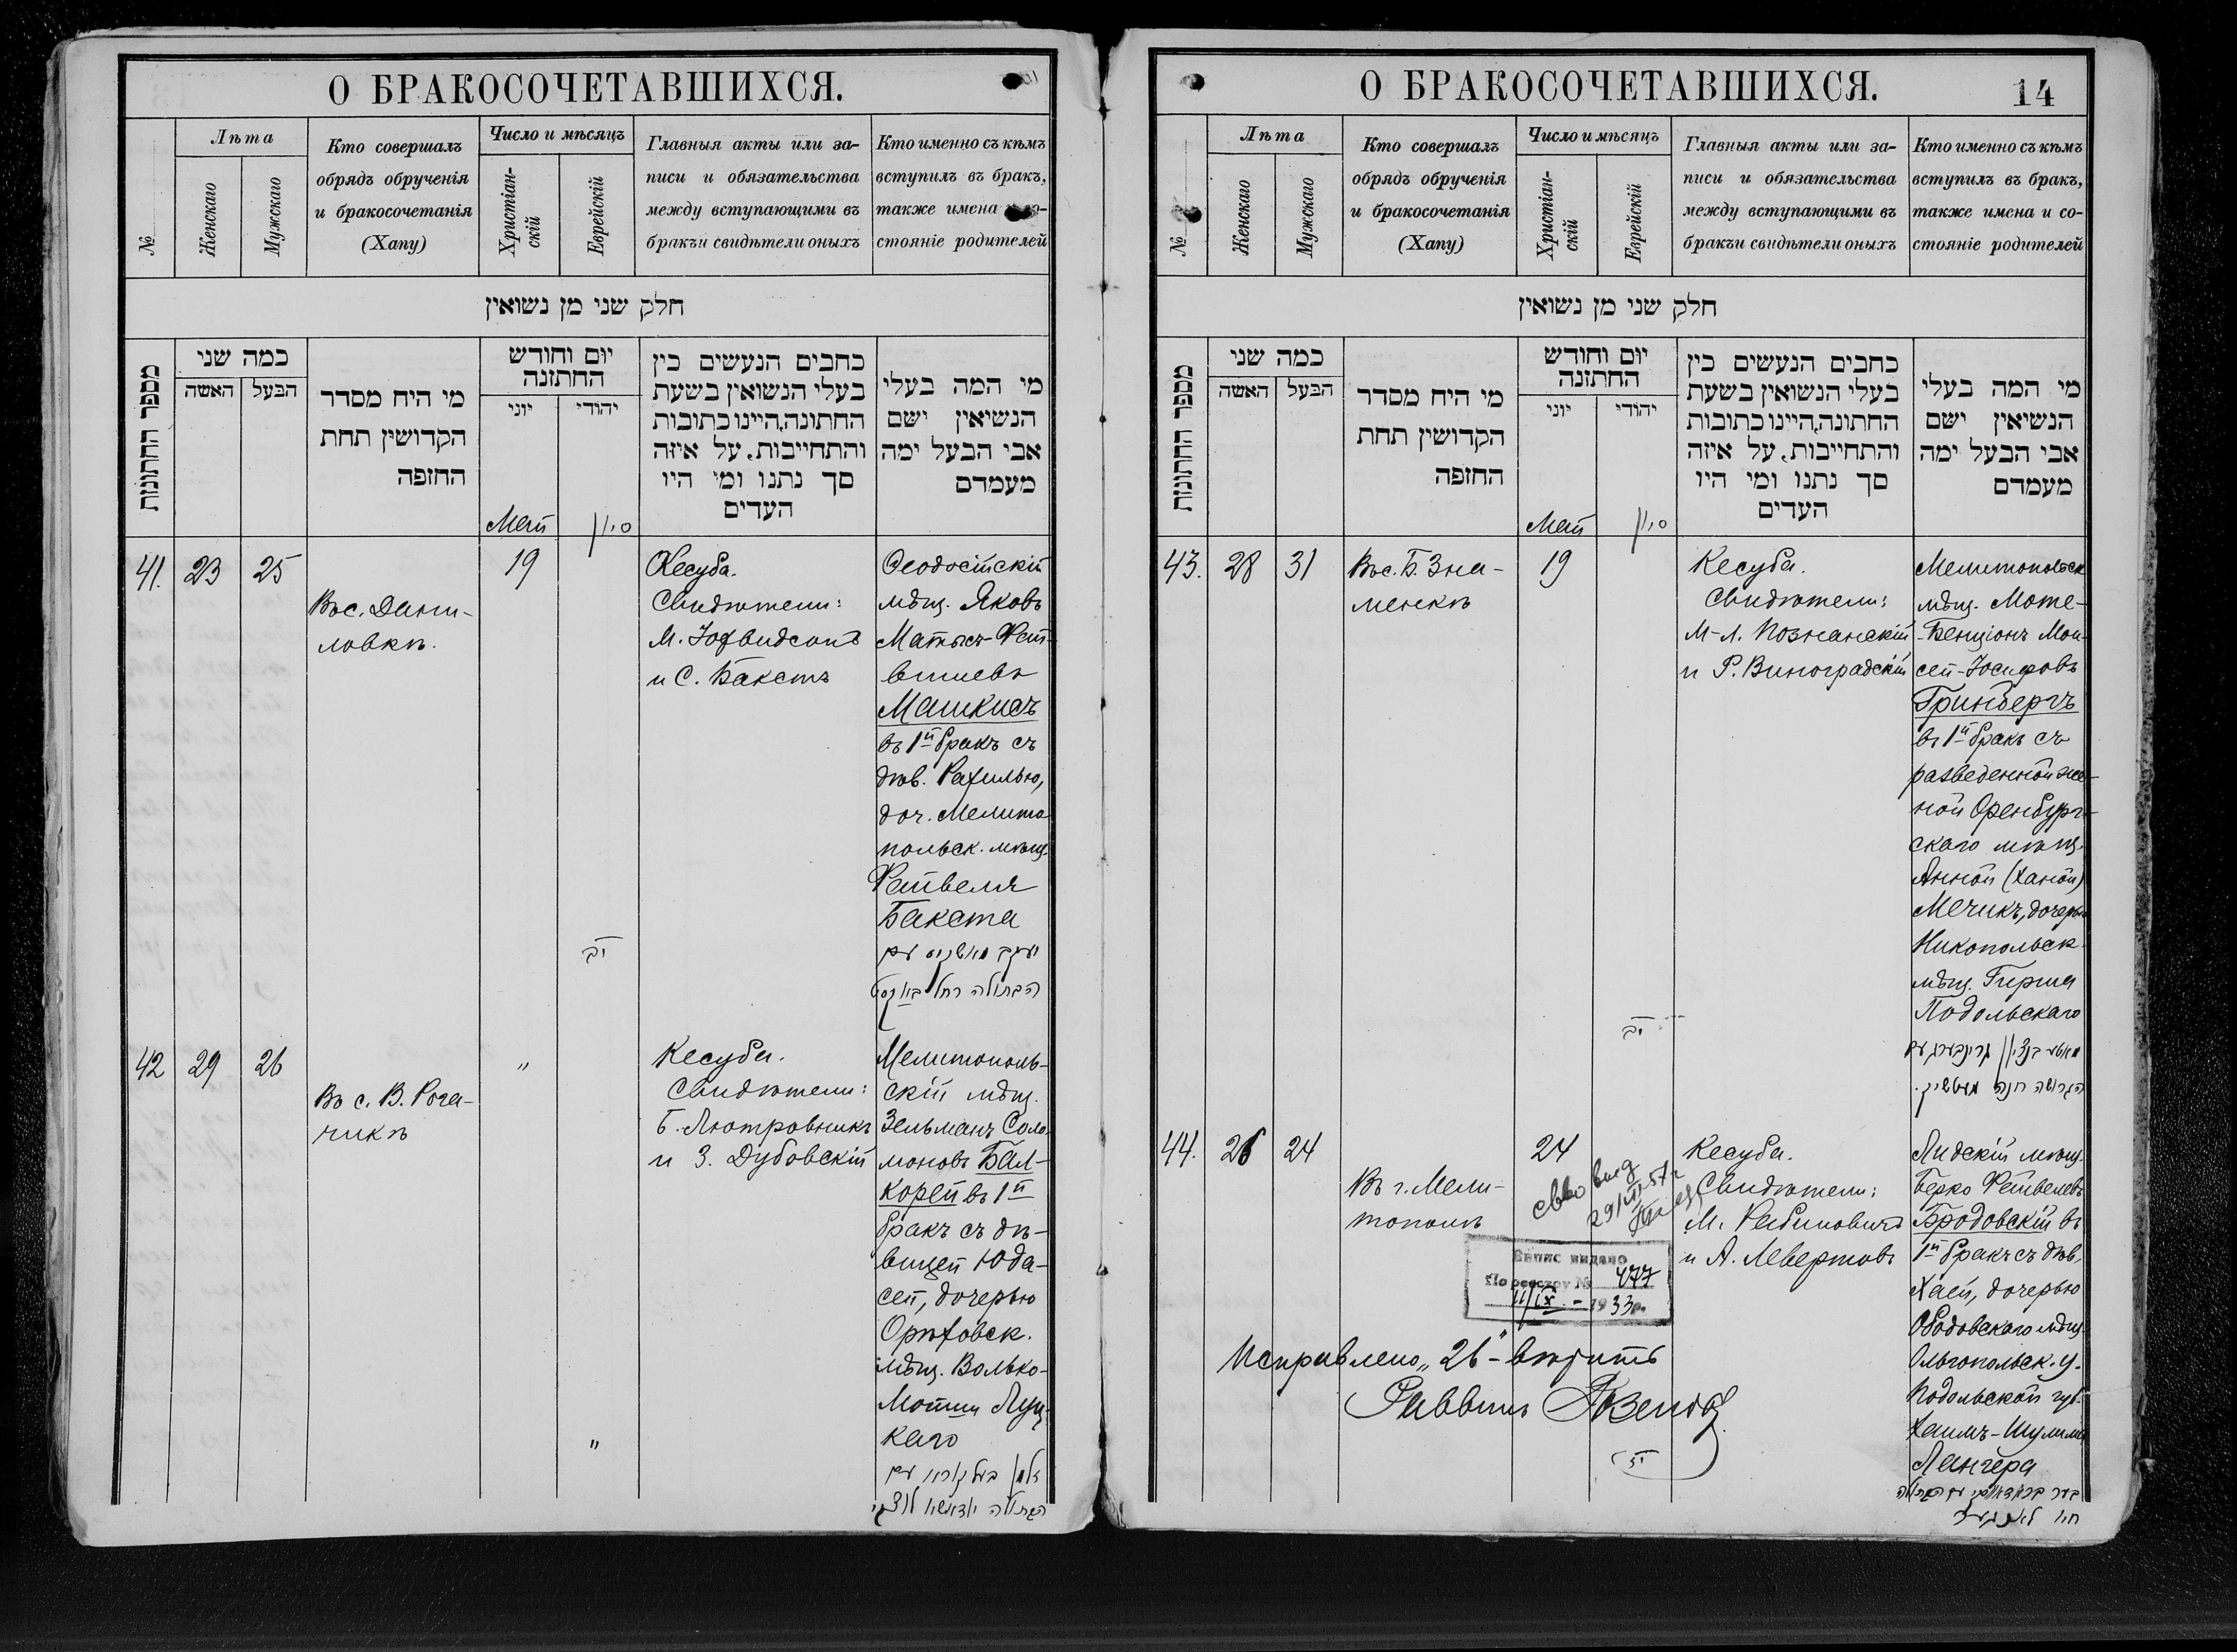 О БРАКОСОЧЕТАВШИХСЯ.
№
Лѣта
Женскаго
Мужскаго
Кто совершалъ
обрядъ обрученія
и бракосочетанія
(Хапу)
Число и мѣсяцъ
Христіан-
скій
Еврейскій
Главныя акты или за-
писи и обязательства
между вступающими въ
бракъи свидѣтели оныхъ
Кто именно съ кѣмъ
вступилъ въ бракъ,
также имена
стояніе родителей
חלק שני מן נשואין
מספר החתונות
כמה שני
האשה
הבעל
מי היח מסדר
הקדושין תחת
החופה
יום וחודש
החתונה
יוני
יהודי
כחבים הנעשים כין
בעלי הנשואין בשעת
החתונה,היינו כתובות
והתחייבות, על איזה
סך נתנו ומי היו
העדים
מי המה בעלי
הנשיאין ישם
אבי הבעל ימה
מעמדם
Май
סיון
41.
23
25
Въ с. Дани-
ловкѣ.
19
Кесуба.
Свидѣтели:
М. Іофвидсонъ
и С. Бакстъ
Ѳеодосійскій
мѣщ. Яковъ
Матысъ-Фей-
вишевъ
Машкисъ
въ 1й бракъ съ
дѣв. Рахилью,
доч. Мелито-
польск. мѣщ.
Файвеля
Бакста
יב
יעקב מאשקיס עם
הבתולה רחל באקסט
42
29
26
Въ с. В. Рога-
чикѣ
"
Кесуба.
Свидѣтели:
Б. Лютровникъ
и З. Дубовскій
Мелитополь-
скій мѣщ.
Зельманъ Соло-
моновъ Бал-
корей въ 1й
бракъ съ дѣ-
вицей Юда-
сей, дочерью
Орѣховск.
мѣщ. Волько-
Мотши Луц-
каго
"
זלמן בעלקוריי עם
הבתולה יודאשא לוצקי
О БРАКОСОЧЕТАВШИХСЯ.
14
№
Лѣта
Женскаго
Мужскаго
Кто совершалъ
обрядъ обрученія
и бракосочетанія
(Хапу)
Число и мѣсяцъ
Христіан-
скій
Еврейскій
Главныя акты или за-
писи и обязательства
между вступающими въ
бракъи свидѣтели оныхъ
Кто именно съ кѣмъ
вступилъ въ бракъ,
также имена и со-
стояніе родителей
חלק שני מן נשואין
מספר החתונות
כמה שני
האשה
הבעל
מי היח מסדר
הקדושין תחת
החופה
יום וחודש
החתונה
יוני
יהודי
כחבים הנעשים כין
בעלי הנשואין בשעת
החתונה,היינו כתובות
והתחייבות, על איזה
סך נתנו ומי היו
העדים
מי המה בעלי
הנשיאין ישם
אבי הבעל ימה
מעמדם
Май
סיון
43.
28
31
Въ с. Б. Зна-
менкѣ
19
Кесуба.
Свидѣтели:
М-Л. Познанскій
и Р. Виноградскій
Мелитопольск
мѣщ. Моте-
-Бенціонъ Мои-
сей-Іосифовъ
Гринбергъ
въ 1й бракъ съ
разведенной же-
ной Оренбург-
скаго мѣщ.
Анной (Ханой)
Мечикъ, дочерью
Никопольск.
мѣщ. Гирша
Подольскаго
יב
מאטע בנציון גרינבערג עם
הגרושה חנה מעטשיק.
44.
26
24
Въ г. Мели-
тополѣ
24
Кесуба.
Свидѣтели:
М. Рабиновичъ
и А. Левертовъ
Лидскій мѣщ.
Берко Файвелевъ
Бродовскій въ
1й бракъ съ дѣв.
Хаей, дочерью
Ободовскаго мѣщ.
Ольгопольск. у.
Подольской губ.
Хаимъ-Шулима
Лангера
בער בראדאווסקי עם הבתולה
חיה לאנגער
29/III-57г
Випис видано
По реєстру № 477
11/IX - 1933р.
Исправлено „26" - вѣрить
Раввинъ
יז